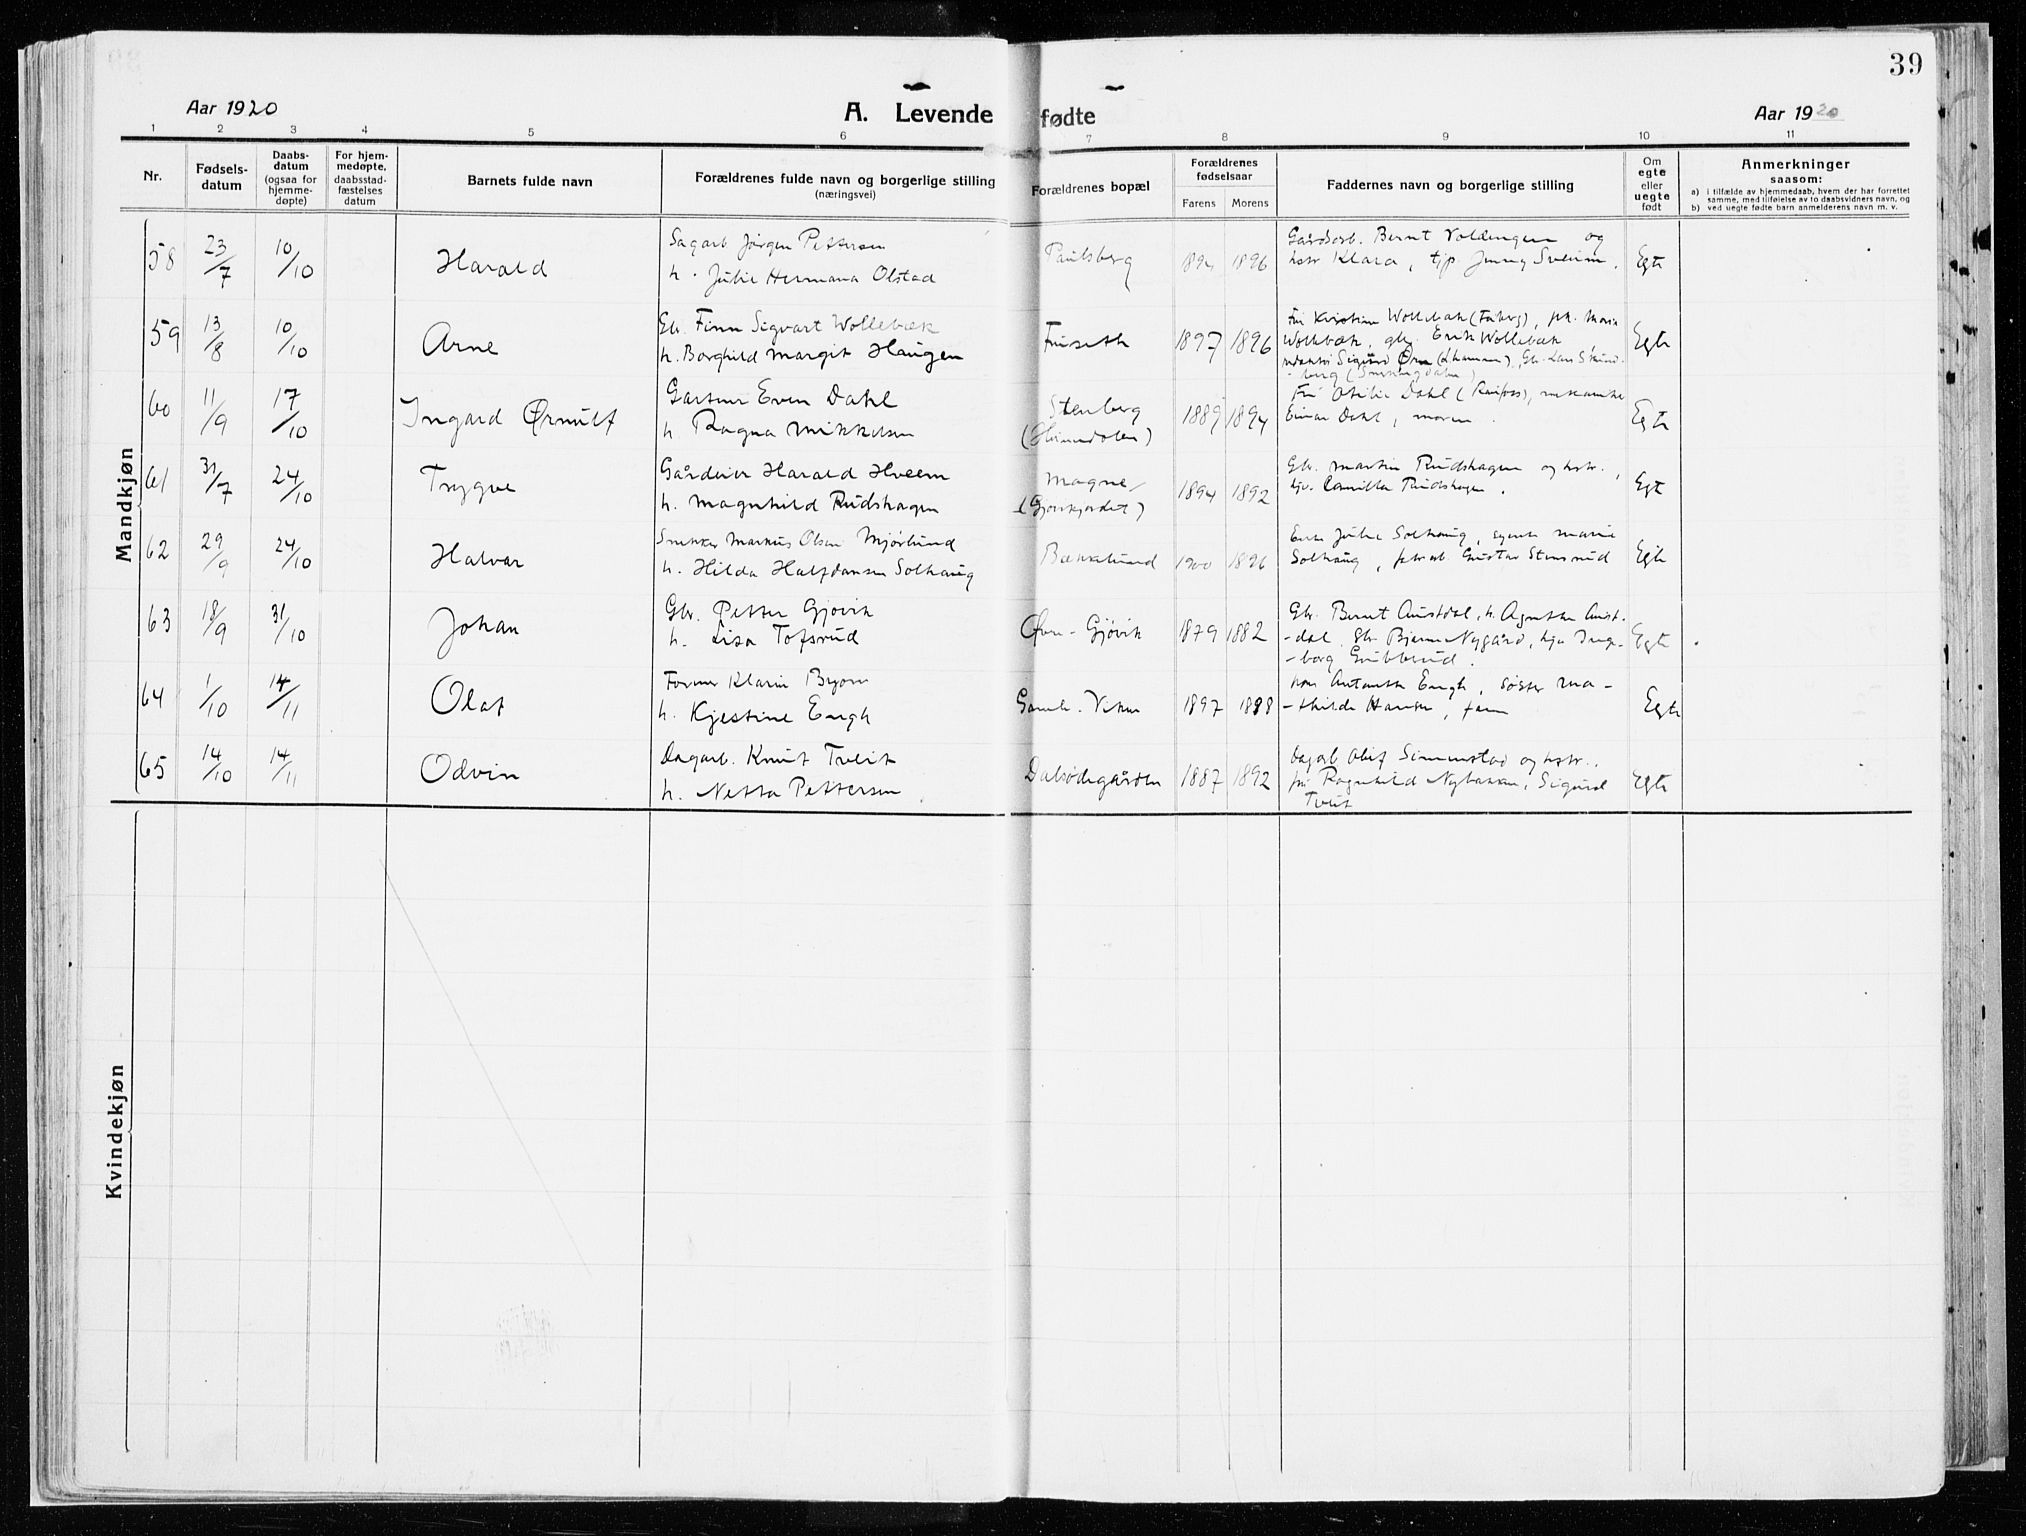 39
Aar 1920
A. Levende fødte
Aar 1920
1 2 3 4 5 6 7 8 9 10 11
Nr.
Fødsels-
datum
Daabs-
datum
(ogsaa for
hjemme-
døpte)
For hjem-
medøpte,
daabsstad-
fæstelses
datum
Barnets fulde navn
Forældrenes fulde navn og borgerlige stilling
(næringsvei)
Forældrenes bopæl
Forældrenes
fødselsaar
Farens Morens
Faddernes navn og borgerlige stilling
Om
egte
eller
uegte
født
Anmerkninger
saasom:
a) i tilfælde av hjemmedaab, hvem der har forrettet
samme, med tilføielse av to daabsvidners navn, og
b) ved uegte fødte barn anmelderens navn m. v.
Mandkjøn
58 23/7 10/10 Harald
Sagarb. Jørgen Pettersen
h. Julie Hermana Olstad
Paulsberg 1894 1896
Gårdsarb. Bernt Voldengen og
hstr Klara, tjp. Jenny Sveum.
Egte
59 13/8 10/10 Arne
Gbr. Finn Sigvart Wollebæk
h. Borghild Margit Haugen
Fruseth 1897 1896
Fru Kristine Wollebæk (Faberg), pk. Maria
Wollebæk, gbr. Erik Wollebæk
redaktør Sigurd Ørn (Lhammer), Gbr. Lars Skind-
berg
Egte
60 11/9 17/10 Ingard Ørnulf
Gartner Even Dahl
h. Ragna Mikkelsen
Stenberg
(Hunndalen)
1889 1894
Fru Otilie Dahl (Raufoss), mekaniker
Einar Dahl, moren.
Egte
61 31/7 24/10 Trygve
Gårdeier Harald Hveem
h. Magnhild Rudshagen
Magne
(Gjøvikjordet)
1894 1892
Gbr. Martin Rudshagen og hstr.,
hjv. Camilla Rudshagen.
Egte
62 29/9 24/10 Halvar
Snekker Markus Olsen Mjørlund
h. Hilda Halfdansen Solhaug
Bækkelund 1900 1896
Enke Julie Solhaug, syerske Marie
Solhaug, fabrarb. Gustav Stensrud
Egte
63 18/9 31/10 Johan
Gbr. Petter Gjøvik
h. Lisa Tofsrud
Øvre-Gjøvik 1879 1882
Gbr. Bernt Austdal, h. Agnethe Aust-
-dal, Gbr Bjarne Nygård, hjv Inge-
-borg Gribberud.
Egte
64 1/10 14/11 Olaf
Former Klarin Bryom
h. Kjestine Engh
Gamle-Viken 1897 1888
frøken Antonette Engh, søster Ma-
-thilde Hansen, faren
Egte
65 14/10 14/11 Odvin
Dagarb. Knut Tveit
h. Netta Pettersen
Dalsødegården 1887 1892
Dagarb Olaf Simenstad og hstr.,
frk Ragnhild Nybakken, Sigurd
Tveit
Egte
Kvindekjøn